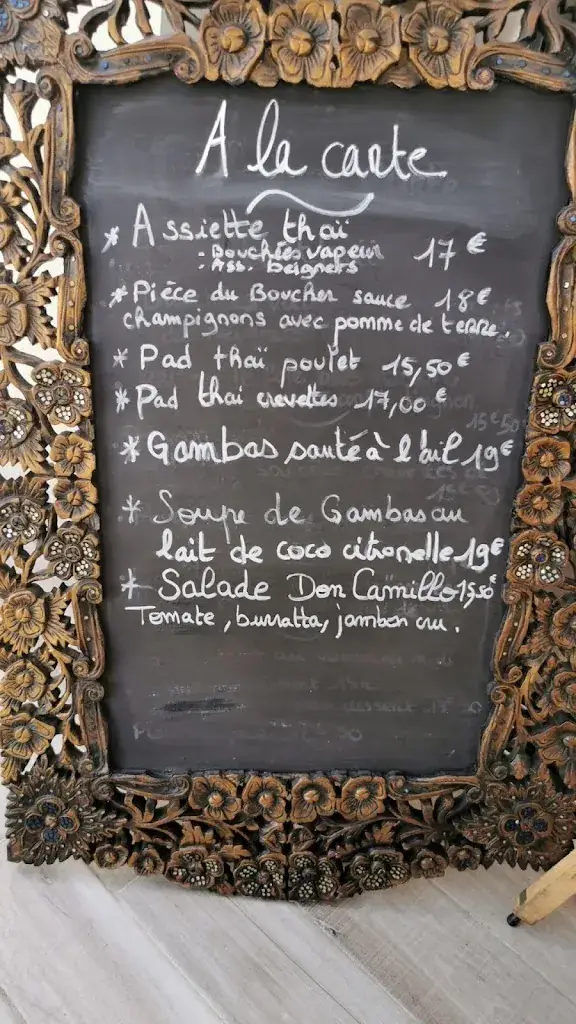 A la carte
* Assiette thaï 17€
- Bouchées vapeur
- Ass. Beignets
* Pièce du Boucher sauce 18€
champignons avec pomme de terre.
* Pad thaï poulet 15,50€
* Pad thai crevettes 17,00€
* Gambas sauté à l'ail 19€
* Soupe de Gambas au
lait de coco citronelle 19€
* Salade Don Camillo 15,50€
Tomate, burratta, jambon cru.